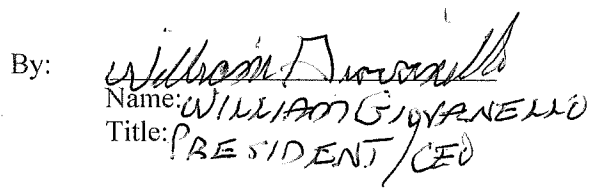 By: William Giovanello
Name: WILLIAM GIOVANELLO
Title: PRESIDENT/CEO